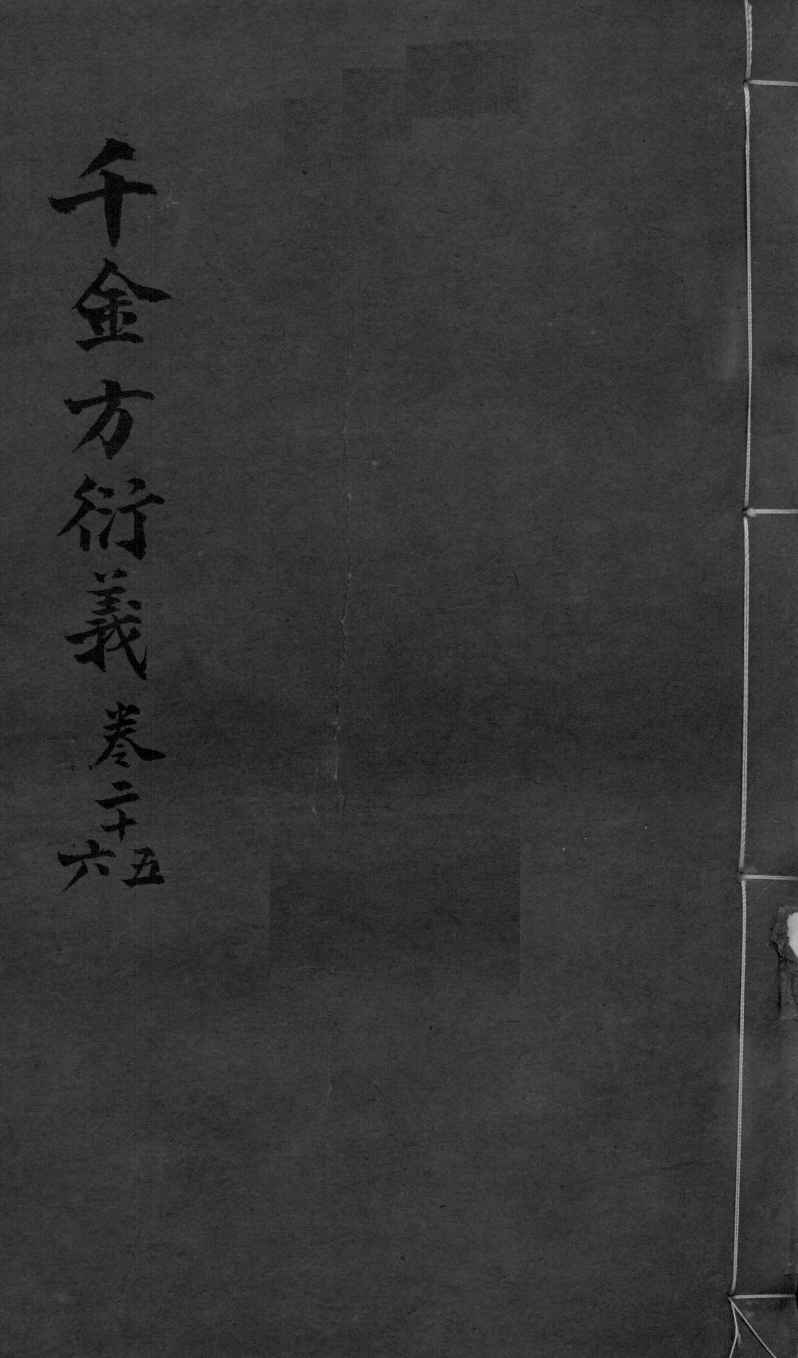 千金方衍義 卷二十五六